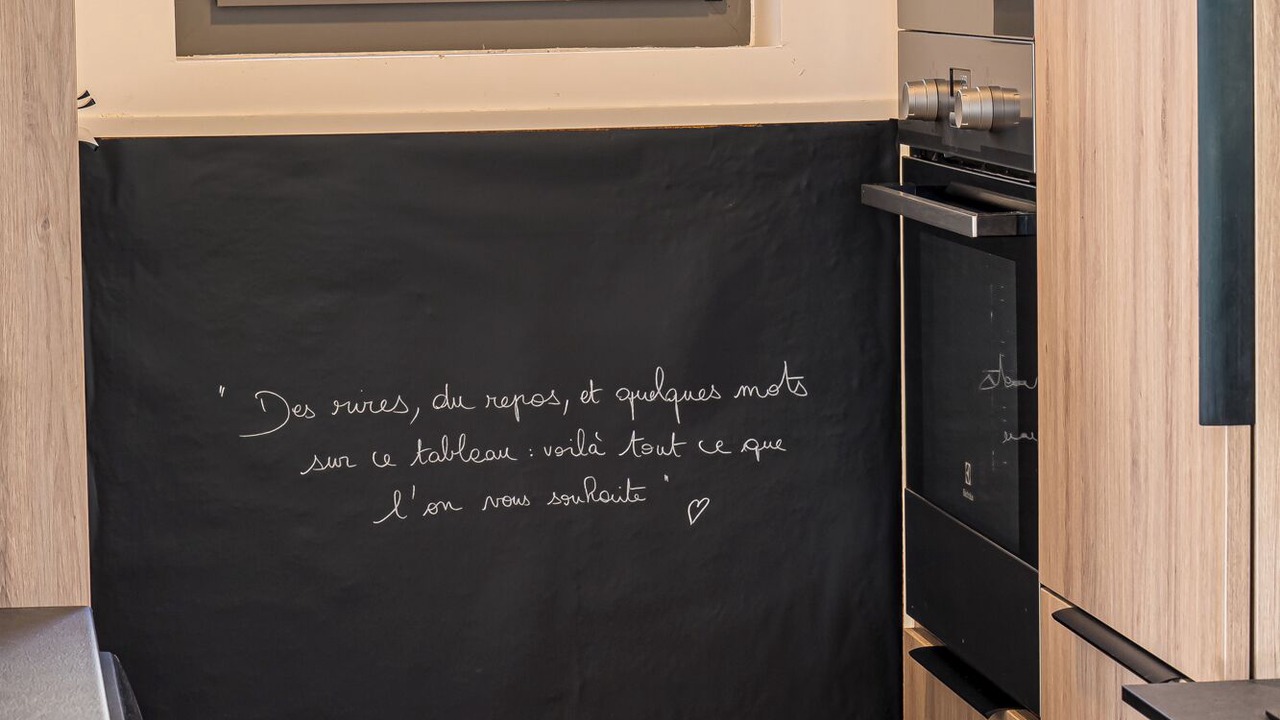 " Des rires, du repos, et quelques mots
sur ce tableau : voilà tout ce que
l'on vous souhaite " ♡